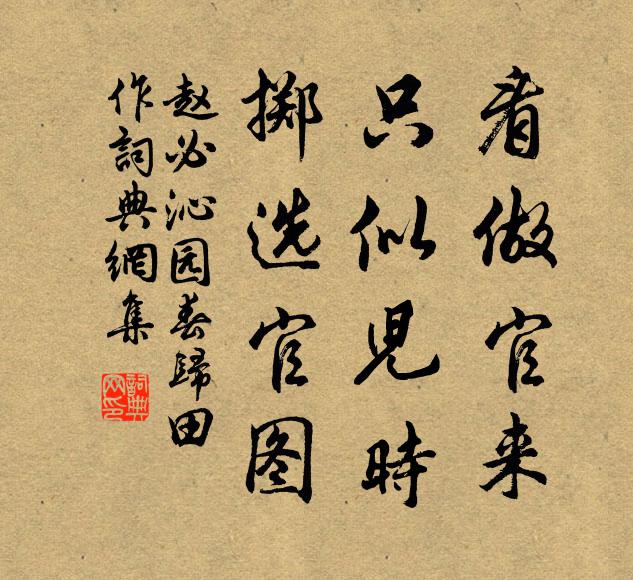 看做官来
只似児時
掷选官图
赵必沁园春歸田
作詞典網集
詞典网印